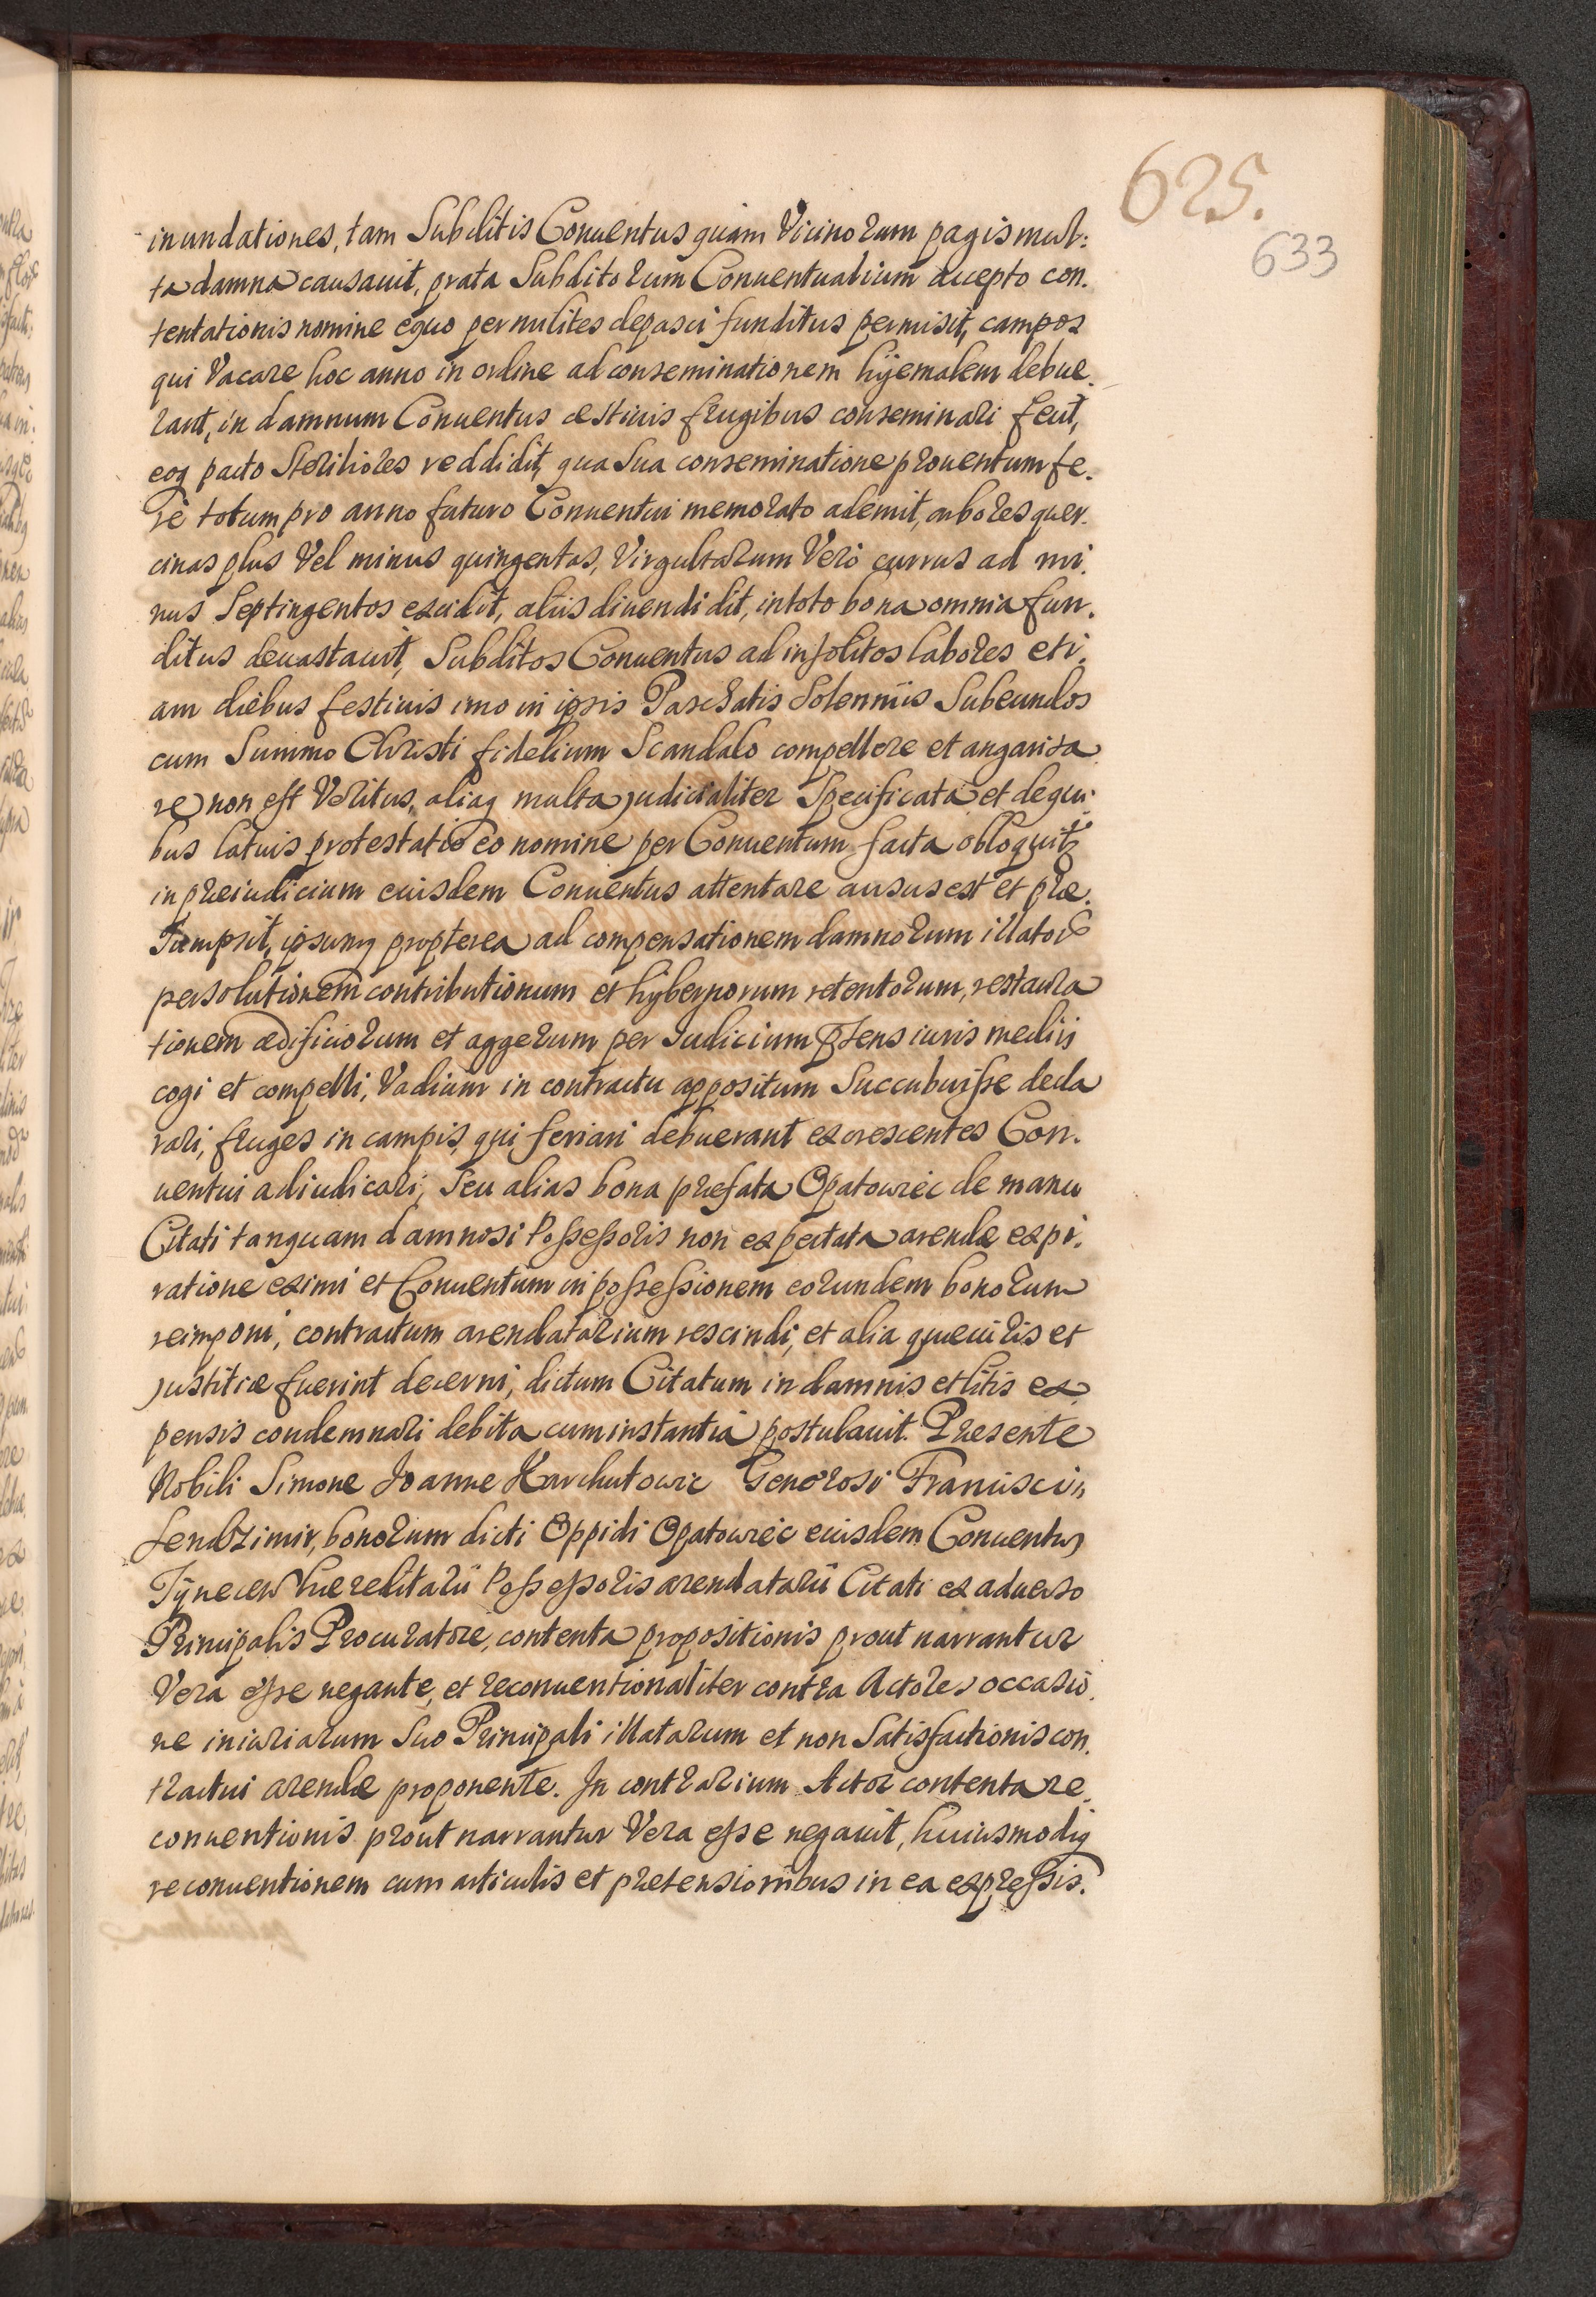 625.
633
inundationes, tam Subditis Conuentus quàm Vicinorum pagis mul:
ta damna causauit, prata Subditorum Conuentualium accepto con.
tentationis nomine equo per milites depasci funditus permisit, campos
qui Vacare hoc anno in ordine ad conseminationem hyemalem debue.
rant, in damnum Conuentus æstiuis frugibus conseminari fecit,
eoq pacto Steriliores reddidit, qua Sua conseminatione prouentum fe.
rè totum pro anno futuro Conuentui memorato ademit, arbores quer.
cinas plus Vel minus quingentas, Virgultorum Verò currus ad mi.
nus Septingentos excidit, aliis diuendidit, in toto bona omnia fun.
ditus deuastauit, Subditos Conuentus ad insolitos labores eti.
am diebus festiuis imo in ipsis Paschatis Solenniis Subeundos
cum Summo Christi fidelium Scandalo compellere et angariza
re non est Veritus, aliaq multa judicialiter Specificata et de qui.
bus latius protestatio eo nomine per Conuentum facta obloquitr
in preiudicium eiusdem Conuentus attentare ausus est et præ.
Sumpsit, ipsumq propterea ad compensationem damnorum illator
persolutionem contributionum et hybernorum retentorum, restaura
tionem ædificiorum et aggerum per Iudicium pñtens iuris mediis
cogi et compelli, Vadium in contractu appositum Succubuisse decla
rari, fruges in campis, qui feriari debuerant excrescentes Con.
uentui adiudicari, Seu alias bona prefata Opatowiec de manu
Citati tanquam damnosi Possessoris non expectata arendæ expi.
ratione eximi et Conuentum in possessionem eorundem bonorum
reimponi, contractum arendatorium rescindi, et alia quæ iuris et
justitiæ fuerint decerni, dictum Citatum in damnis et litis ex
pensis condemnari debita cum instantia postulauit. Presente
Nobili Simone Joanne Karchutowic Generosi Francisci
Sendzimir, bonorum dicti Oppidi Opatowiec eiusdem Conuentus
Tynecen hæreditarii Possessoris arendatarii Citati ex aduerso
Principalis Procuratore, contenta propositionis prout narrantur
Vera esse negante, et reconuentionaliter contra Actores occasio.
ne iniuriarum Suo Principali illatarum et non Satisfactionis con.
tractui arendæ proponente. In contrarium Actor contenta re.
conuentionis prout narrantur Vera esse negauit, huiusmodiq
reconuentionem cum articulis et pretensionibus in ea expressis.